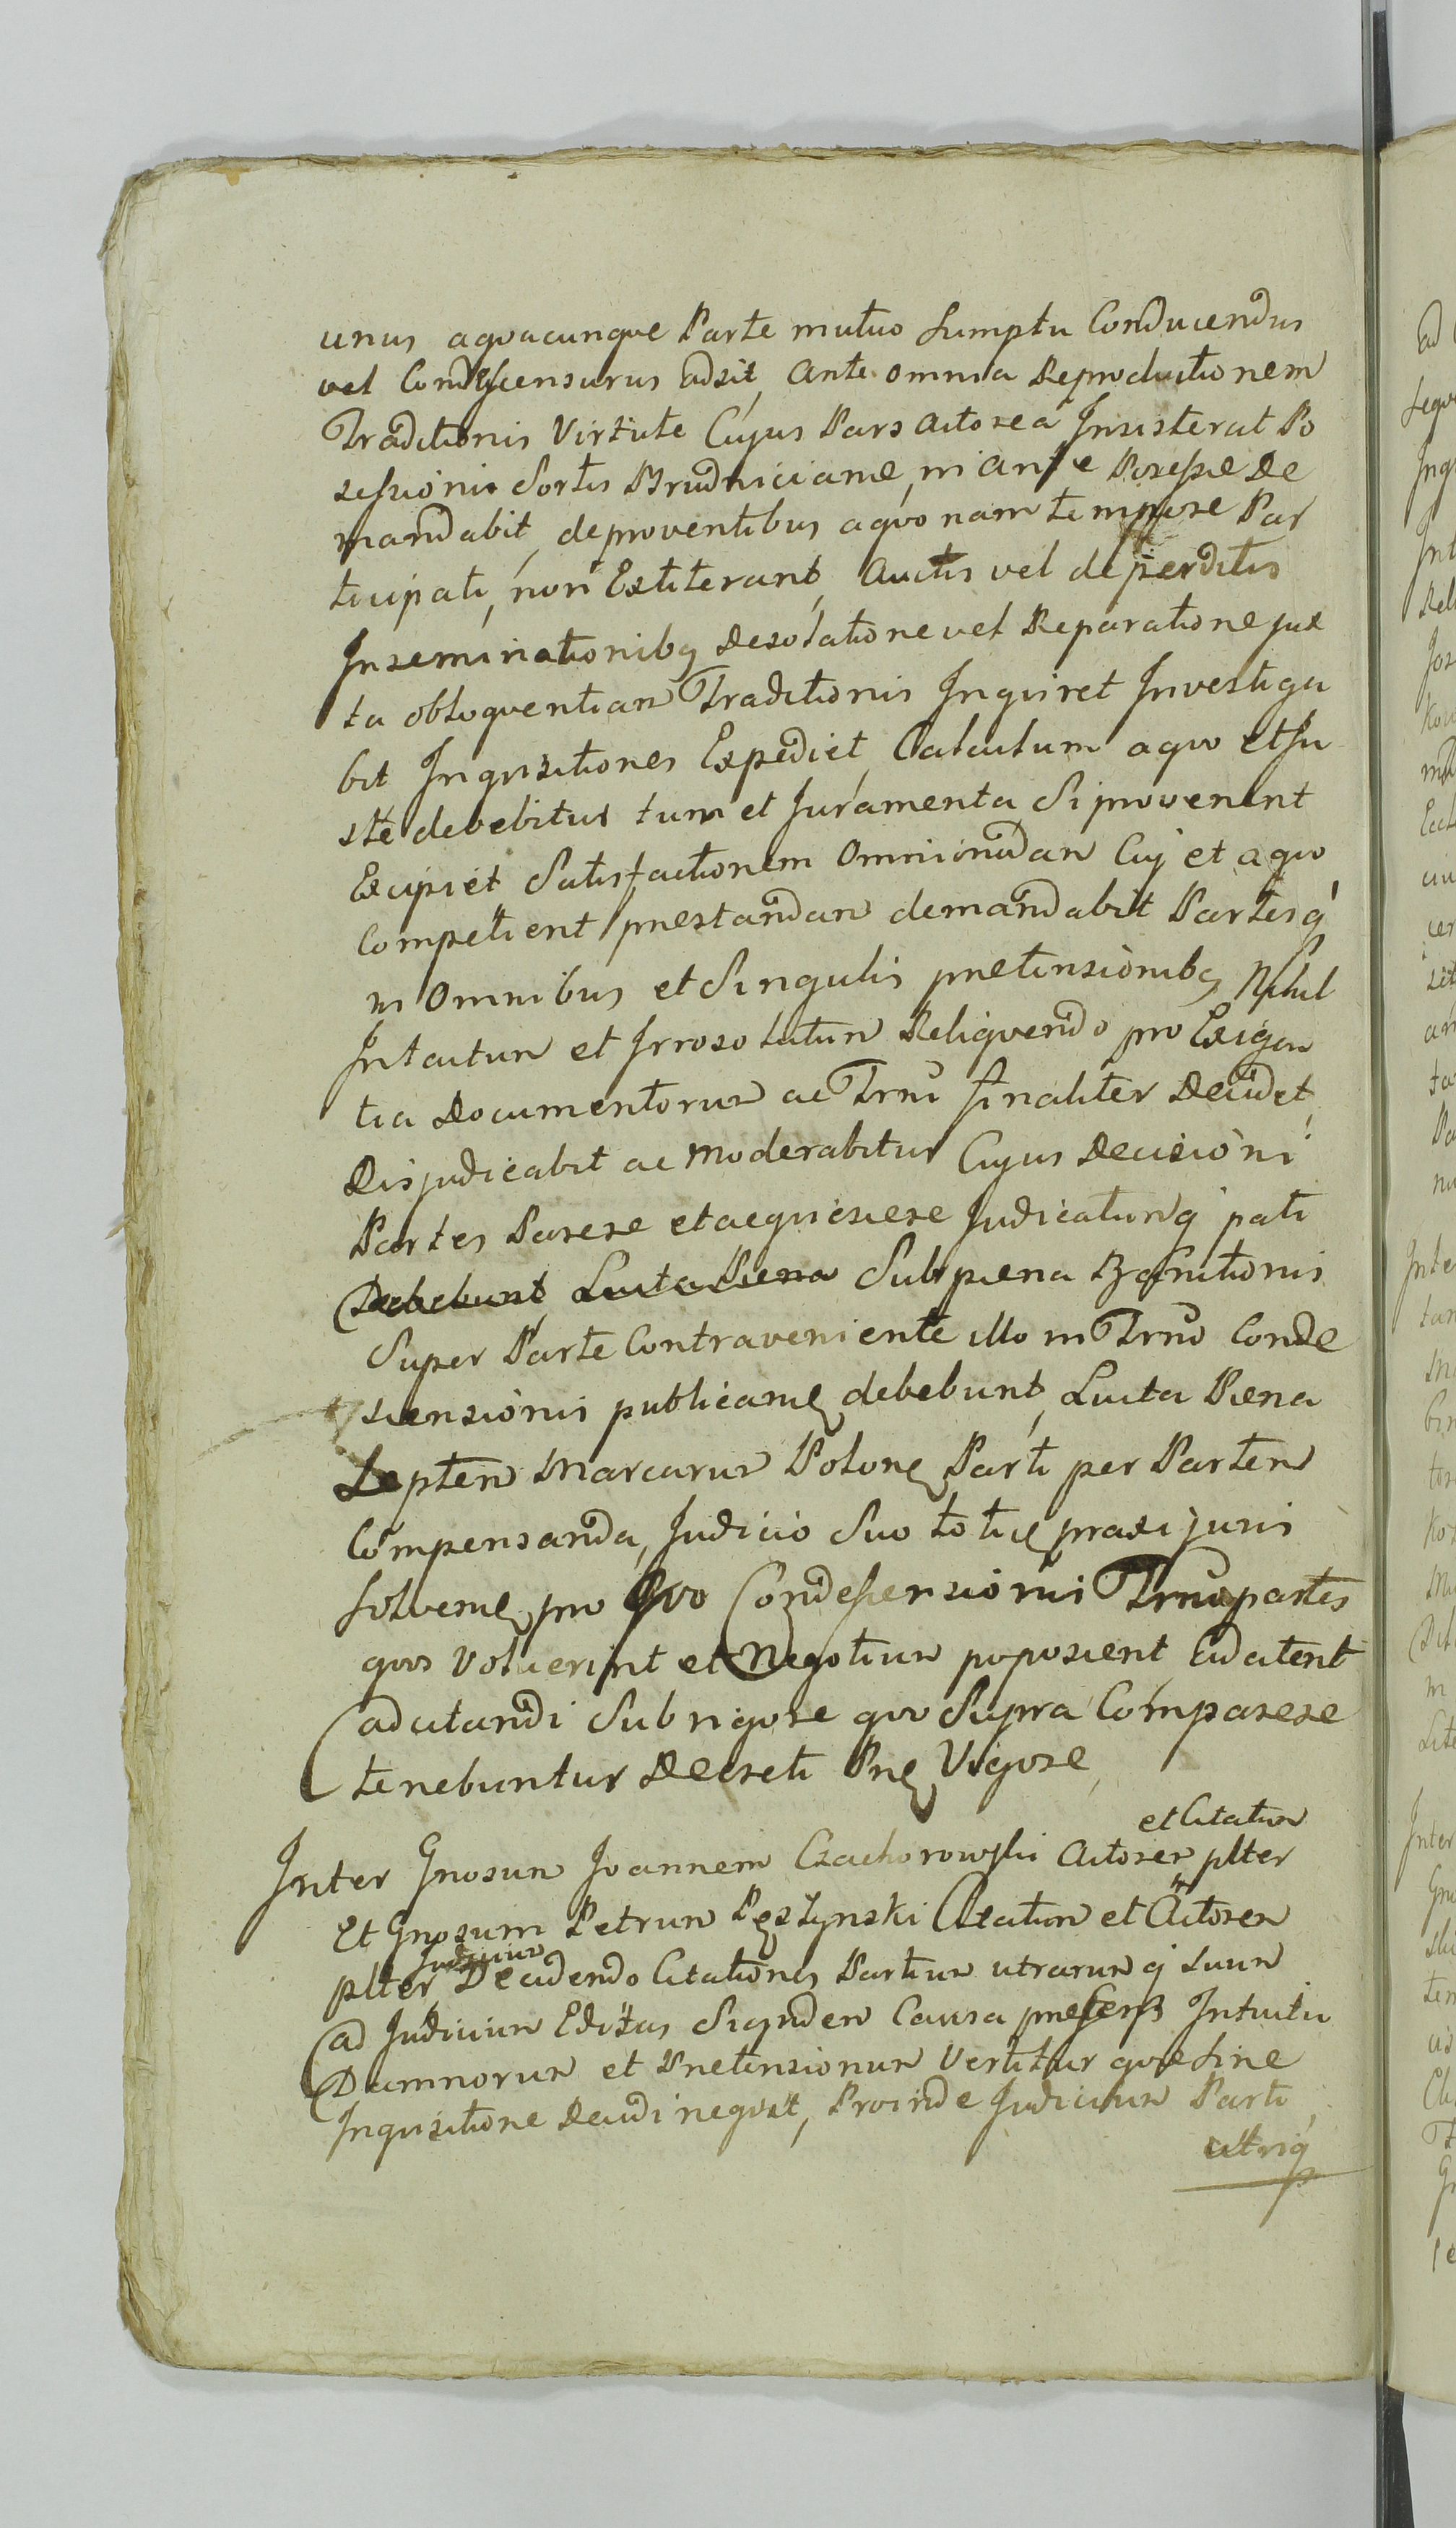 unus aqvacunqve Parte mutuo sumptu Conducendus
vel Condescensurus adsit, ante omnia Reproductionem
Traditionis Virtute Cujus Pars Actorea Insisterat Po
sessioni Sortis Brudniciana, in anse Posessie De
mandabit, deproventibus aqvo nam tempore Par
ticipati, non Extiterant, Auctis vel deperditis
Inseminationibq Desolatione vel Reparatione jux
ta obloqventian Traditionis Inqviret Investiga
bit Inqvisitiones Expediet, Calculum aqvo et Ju
ste debebitur tum et Juramenta Si provenint
Excipiet Satisfactionem Omnimodan Cuj et aqvo
Competient prestandan demandabit Partesq
in Omnibus et Singulis pretensionibq Nihil
Intactun et Irresolutun Reliqvendo pro Exigen
tia Documentorun ac Trni finaliter Decidet,
Disjudicabit ac moderabitur Cujus Decisioni
Partes Parere et acqviescere Judicatunq pati
Debebunt Luita Pena Sub pena Banitionis
Super Parte Contraveniente illo in Trno Conde
scensionis publicane debebunt, Luita Pena
Septen Marcarun Polone Parti per Parten
Compensanda, Judicio Suo totie praxi juris
Solvene, pro Qvo Condescensionis Trno partes
qvos Voluerint et Negotiun poposcient Eidatent
adcitandi Sub rigore qvo Supra Comparere
tenebuntur Decreti Pne Vigore,
et Citatun
Inter Gnosun Joannem Czachorowski Actoren plter
Et Gnosum Petrun Pęstynski Citatun et Actoren
Judiciun
plter, Decidendo Citationes Partiun utrarunq suun
ad Judiciun Editas Siqviden Causa presens Intuitu
Damnorun et Pretensionun Vertitur qvae Sine
Inqvisitione Decidi neqvit, Proinde Judiciun Parti,
utriq